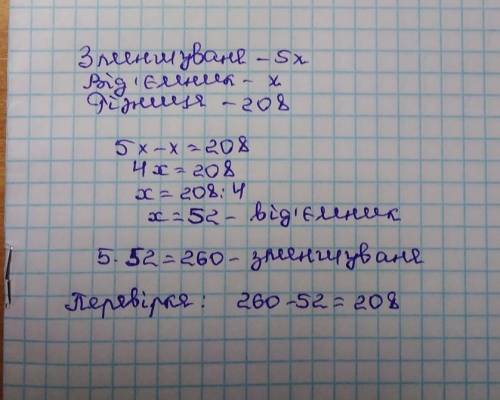 Зменшуване - 5x
Від'ємник - x
Різниця - 208
5x-x=208
4x=208
x=208:4
x=52- від'ємник
5·52=260- зменшуване
Перевірка: 260-52=208